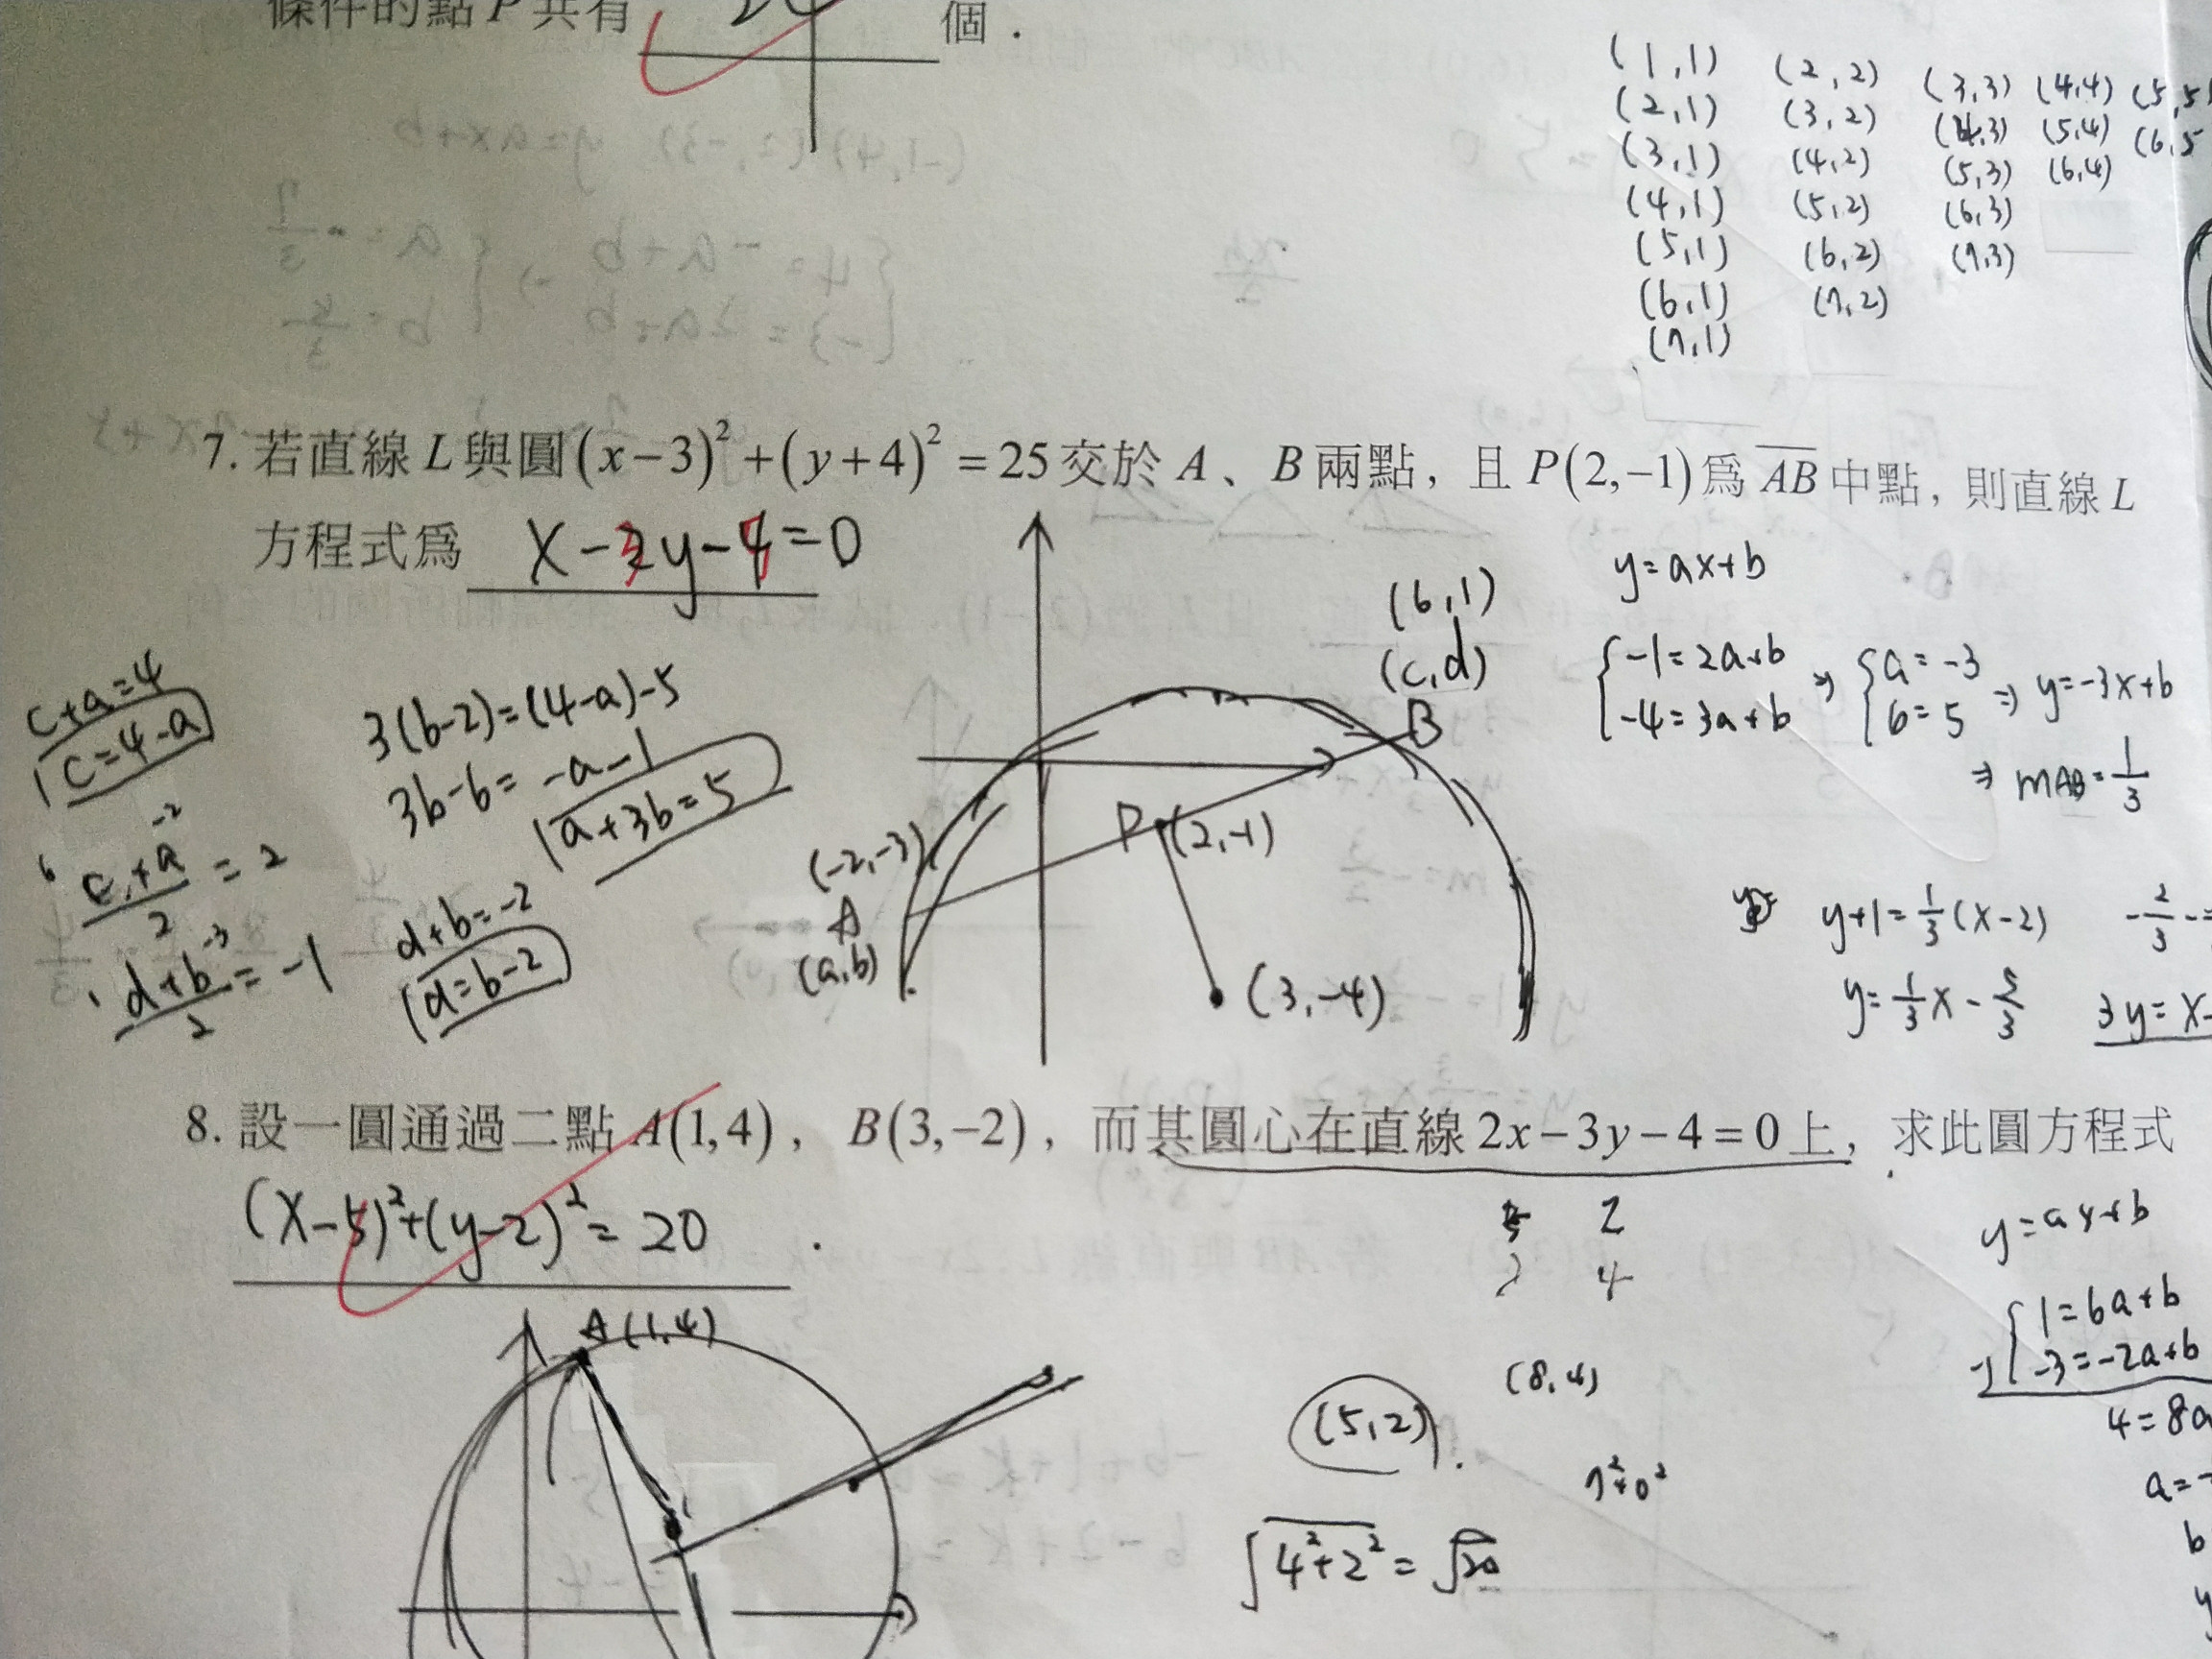 條件的點 P 共有
個.
(1,1) (2,2) (3,3) (4,4) (5,5)
(2,1) (3,2) (4,3) (5,4) (6,5
(3,1) (4,2) (5,3) (6,4)
(4,1) (5,2) (6,3)
(5,1) (6,2) (7,3)
(6,1) (7,2)
(7,1)
7. 若直線 L 與圓 (x−3)² + (y+4)² = 25 交於 A、B 兩點，且 P(2,−1) 為 AB 中點，則直線 L
方程式為 x−3y−5=0
c+a=4
c=4-a
c+a/2 = 2
d+b/2 = -1
3(b-2)=(4-a)-5
3b-6=-a-1
a+3b=5
d+b=-2
d=b-2
(6,1)
(c,d)
B
P(2,-1)
(-2,-3)
A
(a,b)
(3,-4)
y=ax+b
{-1=2a+b
-4=3a+b
⇒ {a=-3
b=5
⇒ y=-3x+b
⇒ mAB=1/3
y+1=1/3(x-2)
y=1/3x-5/3
3y=x-
8. 設一圓通過二點 A(1,4)，B(3,−2)，而其圓心在直線 2x−3y−4=0 上，求此圓方程式
(x-5)²+(y-2)²=20 .
2
4
A(1,4)
(8,4)
(5,2)
7²+0²
√4²+2² = √20
y=ax+b
1=6a+b
-3=-2a+b
4=8a
a=
b
y